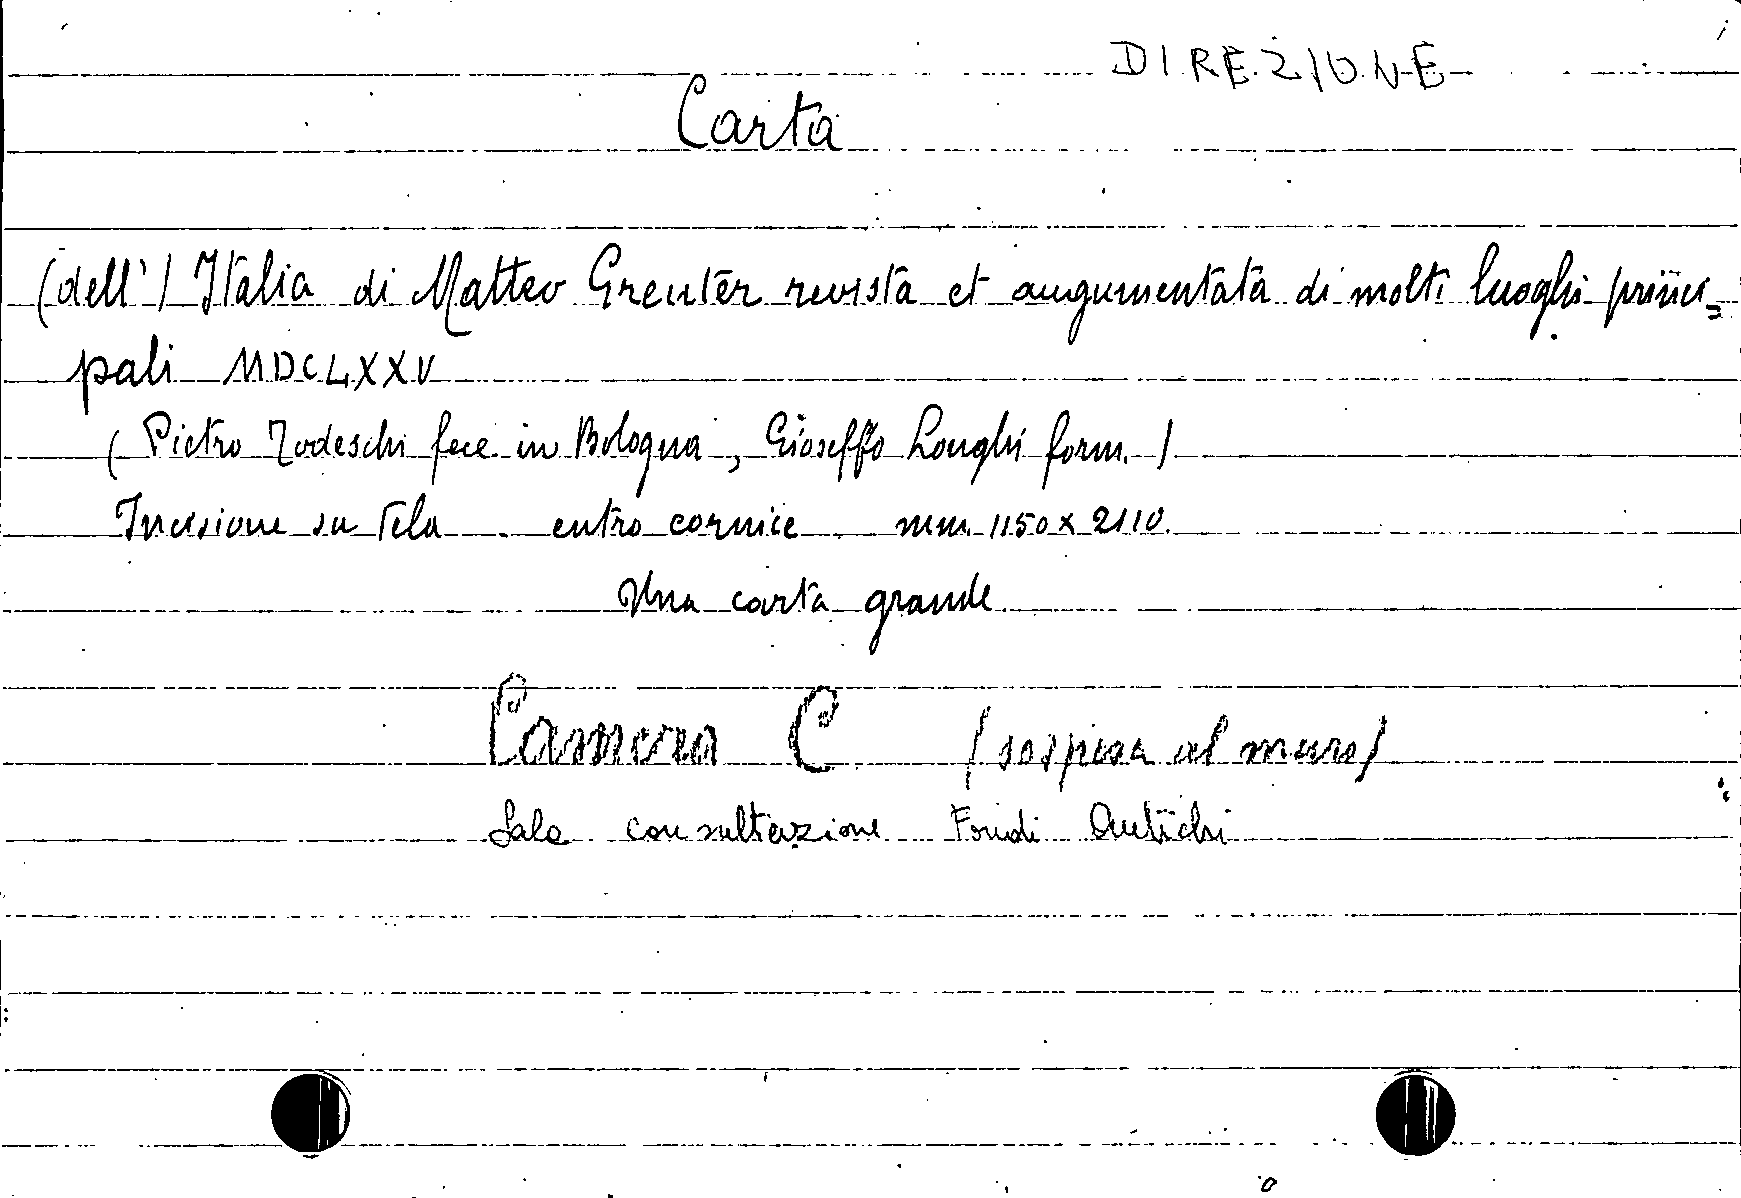 DIREZIONE
Carta
(dell') Italia di Matteo Greuter revista et augumentata di molti luoghi princi=
pali MDCLXXV
(Pietro Todeschi fece in Bologna, Gioseffo Longhi form.)
Incisione su tela entro cornice mm. 1150 x 2110.
Una carta grande
Camera C (sospesa al muro)
Sala consultazione Fondi Antichi